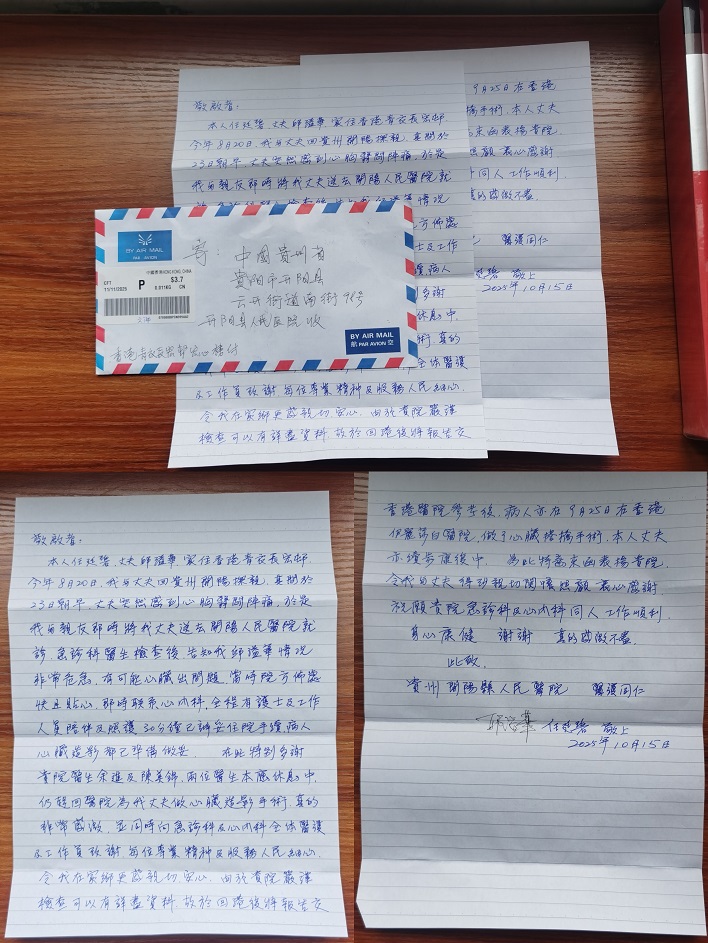 BY AIR MAIL
PAR AVION
中國香港HONG KONG, CHINA
CFT
11/11/2025
P
$3.7
0.011KG CN
寄：中國貴州省
貴阳市开阳县
云开街道南街91号
开阳县人民医院 收
BY AIR MAIL
航 PAR AVION 空
敬啟者：
本人任廷碧、丈夫邱溢華 家住香港青衣長宏邨.
今年8月20日, 我与丈夫回貴州開陽探親, 直到於
23日朝早, 丈夫突然感到心胸翳悶陣痛, 於是
我与親友即時將我丈夫送去開陽人民醫院就
診. 急診科醫生檢查後, 告知我邱溢華情況
非常危急, 有可能心臟出問題, 當時院方佈處
快且貼心, 即時联系心内科, 全程有護士及工作
人員陪伴及照護 30分鐘已辦妥住院手續, 病人
心臟造影都已準備做妥 在此特別多謝
貴院醫生余進及陳美錦, 兩位醫生本應休息中,
仍趕回醫院為我丈夫做心臟造影手術. 真的
非常感激, 並同時向急診科及心内科全体醫護
及工作員致謝, 每位專業精神及服務人民細心.
令我在家鄉更感親切安心. 由於貴院嚴謹
檢查可以有詳盡資料. 故於回港後將報告交
香港醫院參考後, 病人亦在9月25日在香港
伊麗莎白醫院, 做了心臟搭橋手術. 本人丈夫
亦逐步康復中. 為此特意來函表揚貴院.
令我与丈夫得到親切関懷照顧 衷心感謝
祝願貴院急診科及心内科同人工作順利.
身心康健 謝謝 真的感激不盡.
此致.
貴州開陽縣人民醫院 醫護同仁
邱溢華 任廷碧 敬上
2025年10月15日